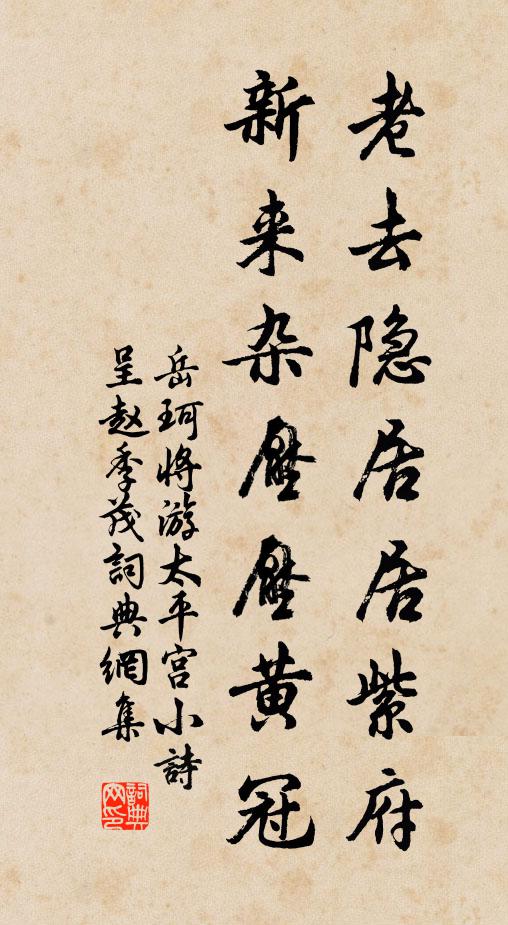 老去隐居居紫府
新来杂壓壓黄冠
岳珂将游太平宫小詩
呈赵季茂詞典網集
詞典网印